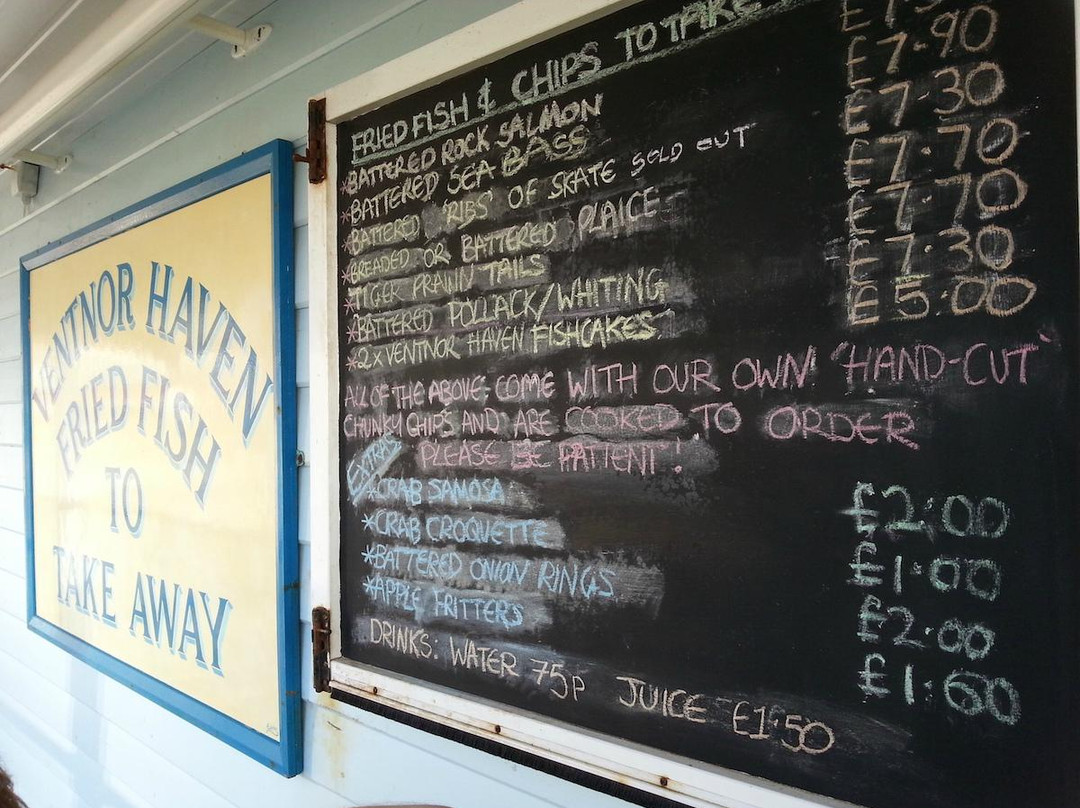 VENTNOR HAVEN
FRIED FISH
TO
TAKE AWAY
FRIED FISH & CHIPS TO TAKE
*BATTERED ROCK SALMON
*BATTERED SEA BASS £7·90
*BATTERED 'RIBS' OF SKATE SOLD OUT £7·30
*BREADED OR BATTERED PLAICE £7·70
*TIGER PRAWN TAILS £7·70
*BATTERED POLLACK/WHITING £7·30
*2x VENTNOR HAVEN FISHCAKES £5·00
ALL OF THE ABOVE COME WITH OUR OWN 'HAND-CUT'
CHUNKY CHIPS AND ARE COOKED TO ORDER
PLEASE BE PATIENT!
EXTRAS
*CRAB SAMOSA £2·00
*CRAB CROQUETTE £1·00
*BATTERED ONION RINGS £2·00
*APPLE FRITTERS £1·60
DRINKS: WATER 75p JUICE £1·50